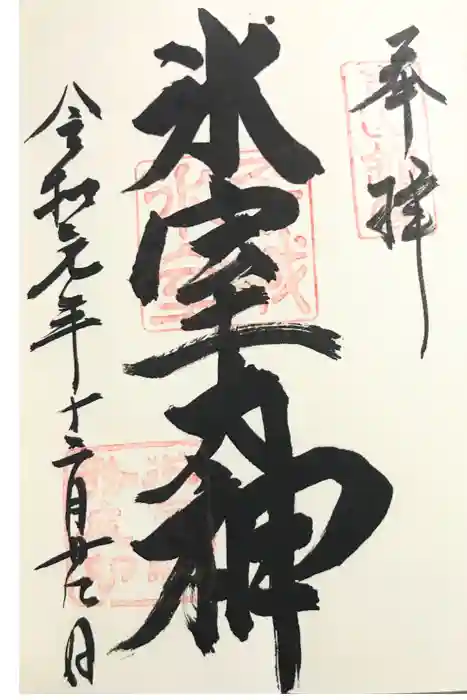 奉拝
氷室大神
令和元年十二月廿七日